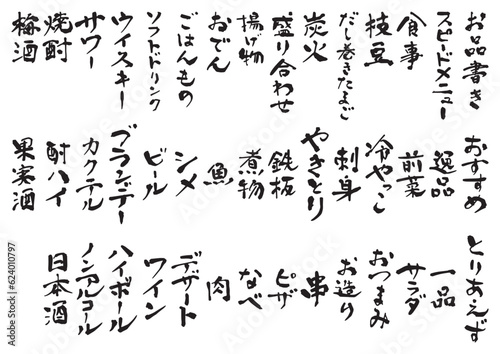 お品書き
スピードメニュー
食事
枝豆
だし巻きたまご
炭火
盛り合わせ
揚げ物
おでん
ごはんもの
ソフトドリンク
ウイスキー
サワー
焼酎
梅酒
おすすめ
逸品
前菜
冷やっこ
刺身
やきとり
鉄板
煮物
魚
シメ
ビール
ブランデー
カクテル
酎ハイ
果実酒
とりあえず
一品
サラダ
おつまみ
お造り
串
ピザ
なべ
肉
デザート
ワイン
ハイボール
ノンアルコール
日本酒
Adobe Stock | #624010797